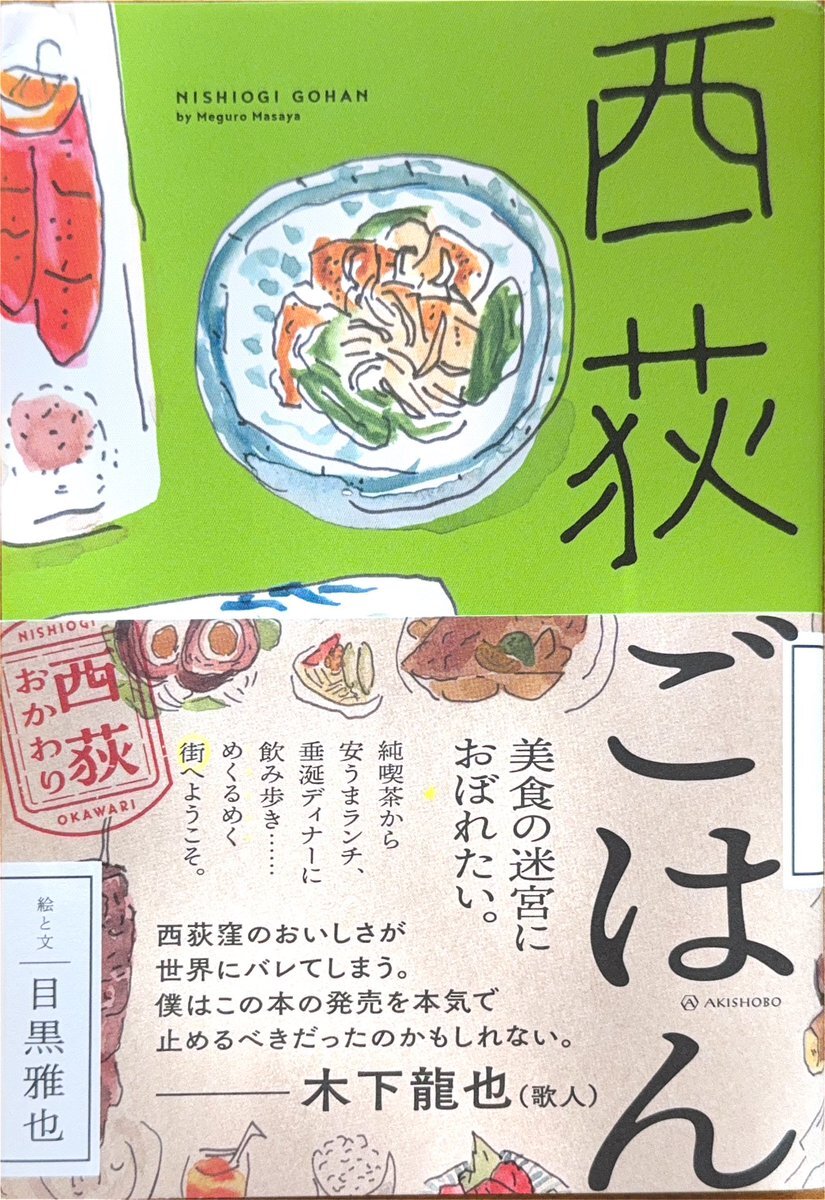 NISHIOGI GOHAN
by Meguro Masaya
西荻
ごはん
NISHIOGI
西荻
おかわり
OKAWARI
美食の迷宮に
おぼれたい。
純喫茶から
安うまランチ、
垂涎ディナーに
飲み歩き……
めくるめく
街へようこそ。
西荻窪のおいしさが
世界にバレてしまう。
僕はこの本の発売を本気で
止めるべきだったのかもしれない。
木下龍也(歌人)
絵と文
目黒雅也
AKISHOBO